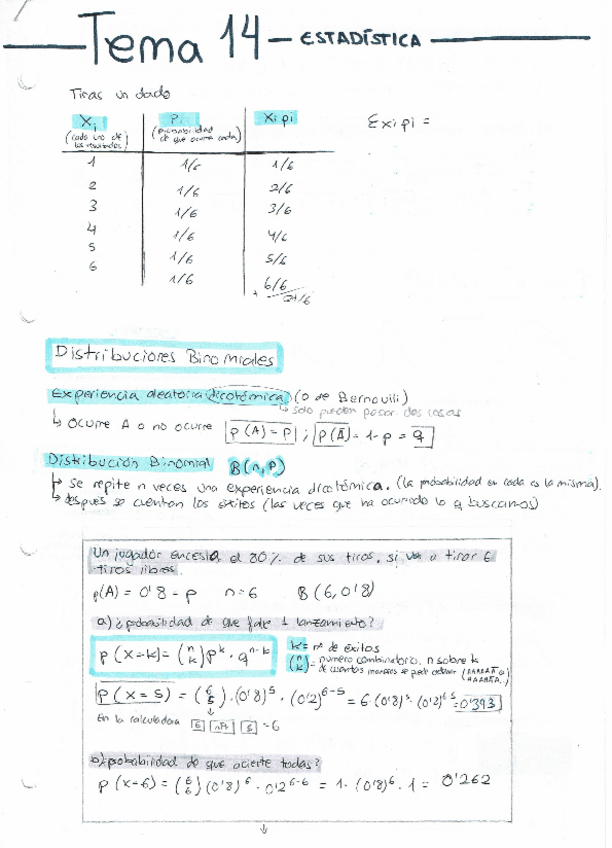 Tema 14 - ESTADÍSTICA
Tiras un dado
Xi pi Xi pi Σxipi =
(cada uno de los resultados) (probabilidad de que ocurra cada)
1 1/6 1/6
2 1/6 2/6
3 1/6 3/6
4 1/6 4/6
5 1/6 5/6
6 1/6 6/6
+ 21/6
Distribuciones Binomiales
Experiencia aleatoria dicotómica (o de Bernouili)
↳ solo pueden pasar dos cosas
↳ Ocurre A o no ocurre p(A) = p ; p(Ā) = 1-p = q
Distribución Binomial B(n,p)
↳ Se repite n veces una experiencia dicotómica. (la probabilidad en cada es la misma).
↳ después se cuentan los éxitos (las veces que ha ocurrido lo q buscamos)
Un jugador encesta el 80% de sus tiros, si va a tirar 6
tiros libres.
p(A) = 0'8 = p n=6 B(6,0'8)
a) ¿probabilidad de que falle 1 lanzamiento?
p(x=k) = (n k) p^k · q^(n-k)
k = nº de éxitos
(n k) = numero combinatorio, n sobre k
de cuantas maneras se puede
p(x=5) = (6 5) · (0'8)^5 · (0'2)^(6-5) = 6 · (0'8)^5 · (0'2)^(6-5) = 0'393
En la calculadora 6 nPr 5 = 6
b) ¿probabilidad de que acierte todas?
p(x=6) = (6 6) (0'8)^6 · 0'2^(6-6) = 1 · (0'8)^6 · 1 = 0'262